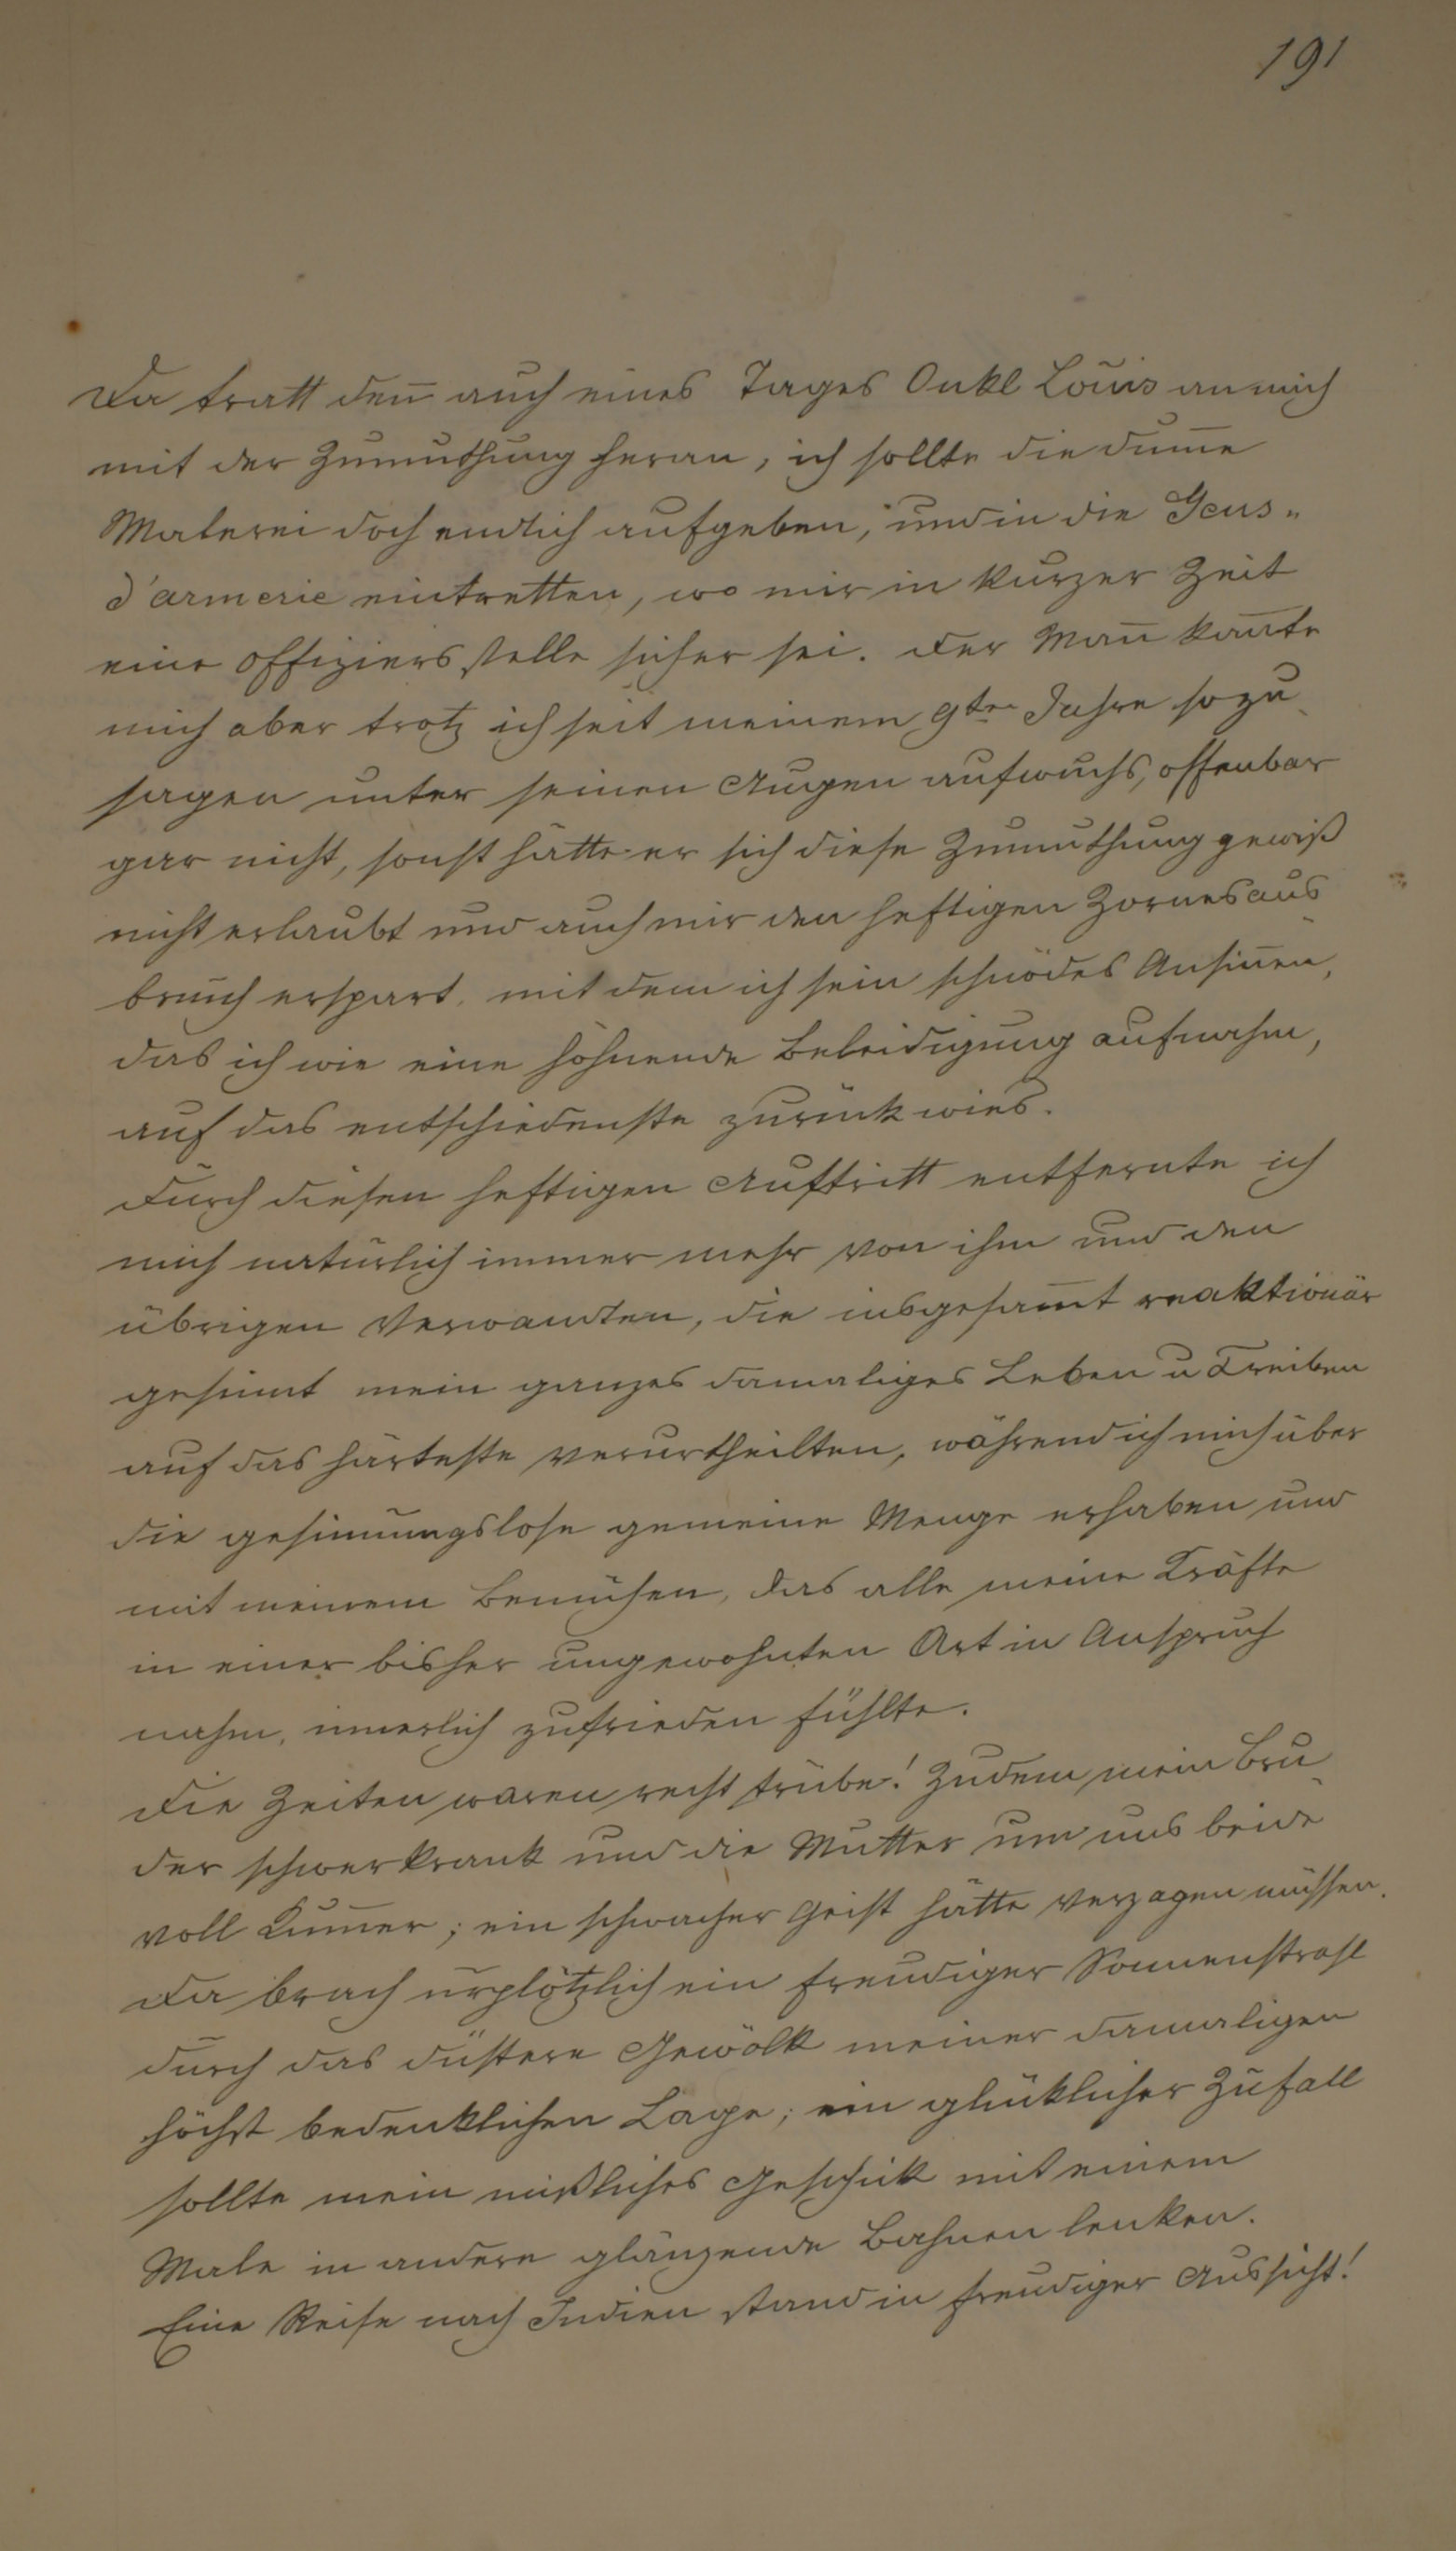 191
Da tratt deñ auch eines Tages Onkl Louis an mich
mit der Zumuthung heran, ich sollte die dum̅e
Malerei doch endlich aufgeben, und in die Gens-
d'armerie eintretten, wo mir in kurzer Zeit
eine Offiziersstelle sicher sei. Der Mañ kañte
mich aber trotz ich seit meinem 9ten Jahre sozu
sagen unter seinen Augen aufwuchs, offenbar
gar nicht, sonst hätte er sich diese Zumuthung gewiß
nicht erlaubt und auch mir den heftigen Zornesaus
bruch erspart, mit dem ich sein schnödes Ansiñen,
das ich wie eine höhnende Beleidigung aufnahm,
auf das entschiedenste zurückwies.
Durch diesen heftigen Auftritt entfernte ich
mich natürlich immer mehr von ihm und den
übrigen Verwandten, die insgesam̅t reaktionär
gesinnt mein ganzes damaliges Leben u Treiben
auf das härteste verurtheilten, während ich mich über
die gesinnungslose gemeine Menge erhaben und
mit meinem Bemühen, das alle meine Kräfte
in einer bisher ungewohnten Art in Anspruch
nahm, innerlich zufrieden fühlte.
Die Zeiten waren recht trübe! Zudem mein Bru
der schwerkrank und die Mutter um uns beide
voll Kum̅er; ein schwacher Geist hätte verzagen müssen.
Da brach urplötzlich ein freudiger Sonnenstrahl
durch das düstere Gewölk meiner damaligen
höchst bedenklichen Lage; ein glücklicher Zufall
sollte mein mißliches Geschick mit einem
Male in andere glänzende Bahnen lenken.
Eine Reise nach Indien stand in freudiger Aussicht!